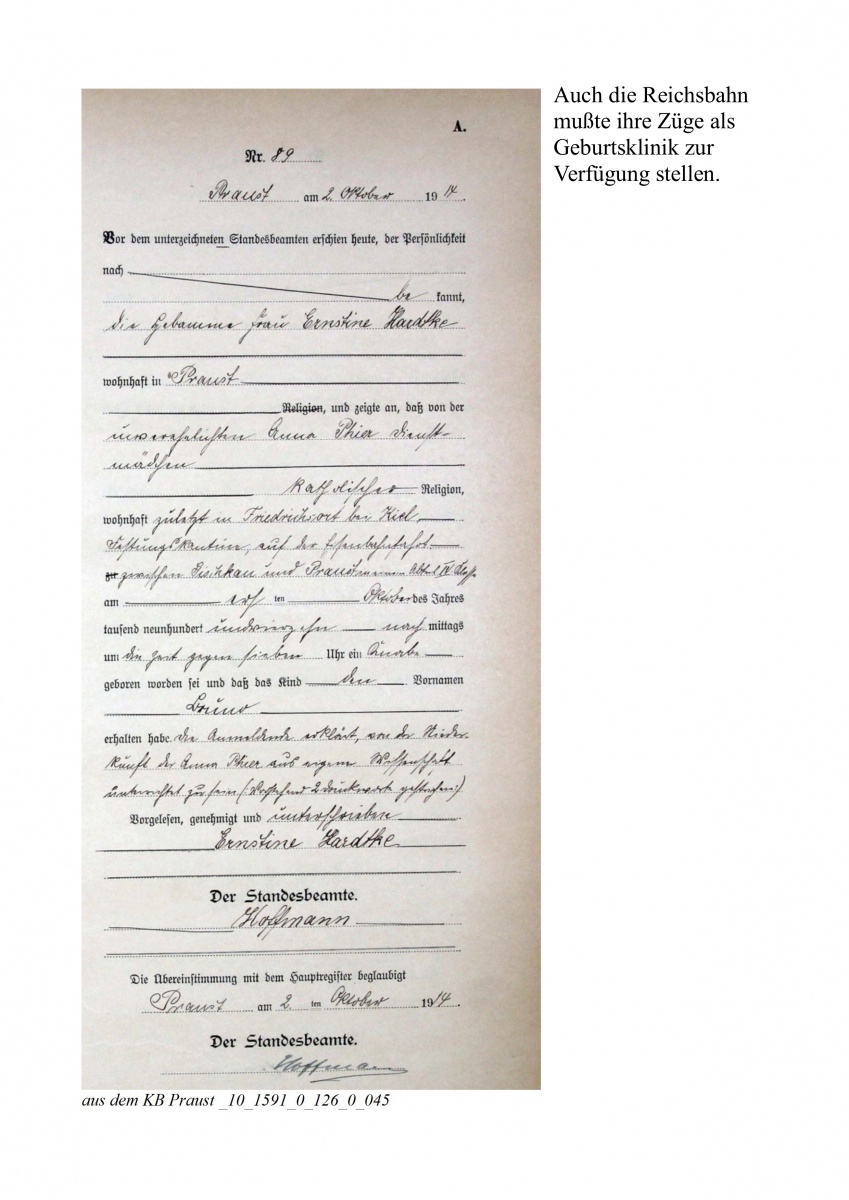 Auch die Reichsbahn
mußte ihre Züge als
Geburtsklinik zur
Verfügung stellen.
A.
Nr. 89
Praust am 2. Oktober 1914.
Vor dem unterzeichneten Standesbeamten erschien heute, der Persönlichkeit
nach
be kannt,
die Hebamme Frau Ernstine Hardtke
wohnhaft in Praust
Religion, und zeigte an, daß von der
unverehelichten Anna Dienst-
mädchen
katholischer Religion,
wohnhaft zuletzt in Friedrichsort bei Kiel,
Festungskantine, auf der Eisenbahnfahrt
zwischen und Praust Klasse
am ersten Oktober des Jahres
tausend neunhundert undvierzehn nach mittags
um die Zeit gegen sieben Uhr ein Knabe
geboren worden sei und daß das Kind den Vornamen
Bruno
erhalten habe. Die Anmeldende erklärt, von der Nieder-
kunft der Anna aus eigener Wissenschaft
unterrichtet zu sein (Vorstehend 2 Druckworte gestrichen)
Vorgelesen, genehmigt und unterschrieben
Ernstine Hardtke
Der Standesbeamte.
Hoffmann
Die Übereinstimmung mit dem Hauptregister beglaubigt
Praust am 2. ten Oktober 1914.
Der Standesbeamte.
Hoffmann
aus dem KB Praust _10_1591_0_126_0_045